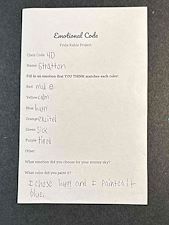 Emotional Code
Frida Kahlo Project
Class Code: 4D
Name: Stratton
Fill in an emotion that YOU THINK matches each color:
Red:
Yellow: calm
Blue: hurt
Orange: excited
Green: Sick
Purple: tired
Other:
What emotion did you choose for your stormy sky?
What color did you paint it?
I chose hurt and I painted it
blue.